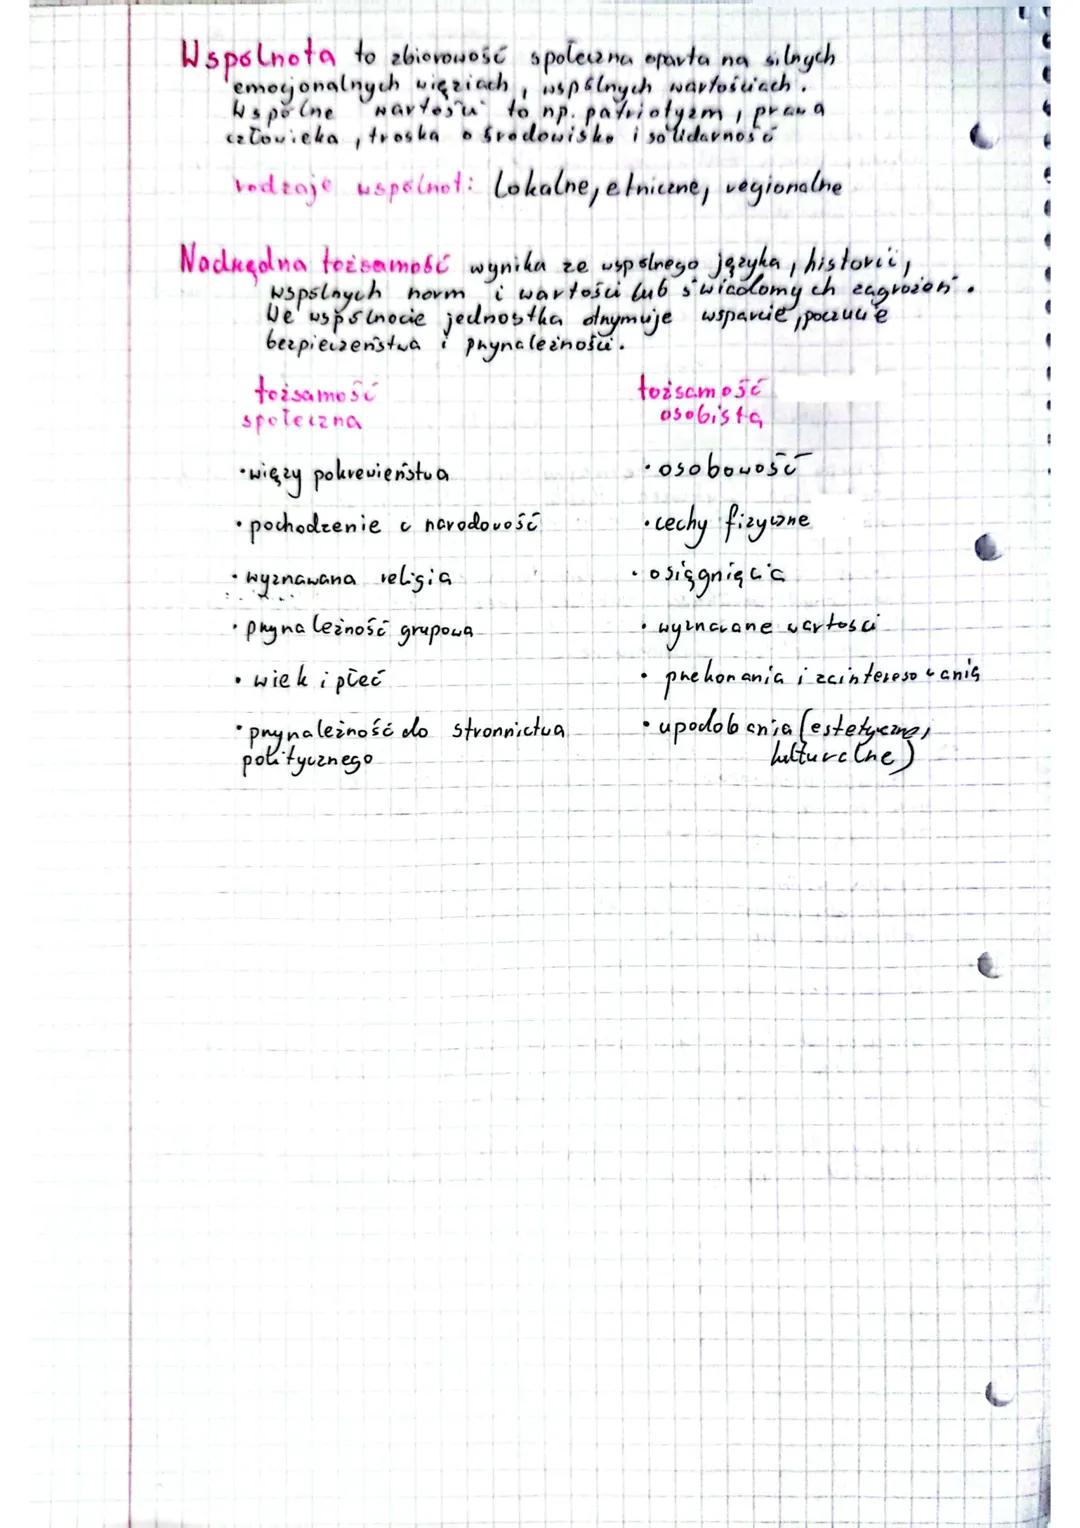 Wspólnota to zbiorowość społeczna oparta na silnych
emocjonalnych więziach, wspólnych wartościach.
Wspólne wartości to np. patriotyzm, prawa
człowieka, troska o środowisko i solidarność
rodzaje wspólnot: Lokalne, etniczne, regionalne
Nadrzędna tożsamość wynika ze wspólnego języka, historii,
wspólnych norm i wartości lub świadomych zagrożeń.
We wspólnocie jednostka otrzymuje wsparcie, poczucie
bezpieczeństwa i przynależności.
tożsamość społeczna
tożsamość osobista
•więzy pokrewieństwa
•osobowość
•pochodzenie narodowość
•cechy fizyczne
•wyznawana religia
•osiągnięcia
•przynależność grupowa
•wyznawane wartości
•wiek i płeć
•przekonania i zainteresowania
•przynależność do stronnictwa
politycznego
•upodobania (estetyczne,
kulturalne)